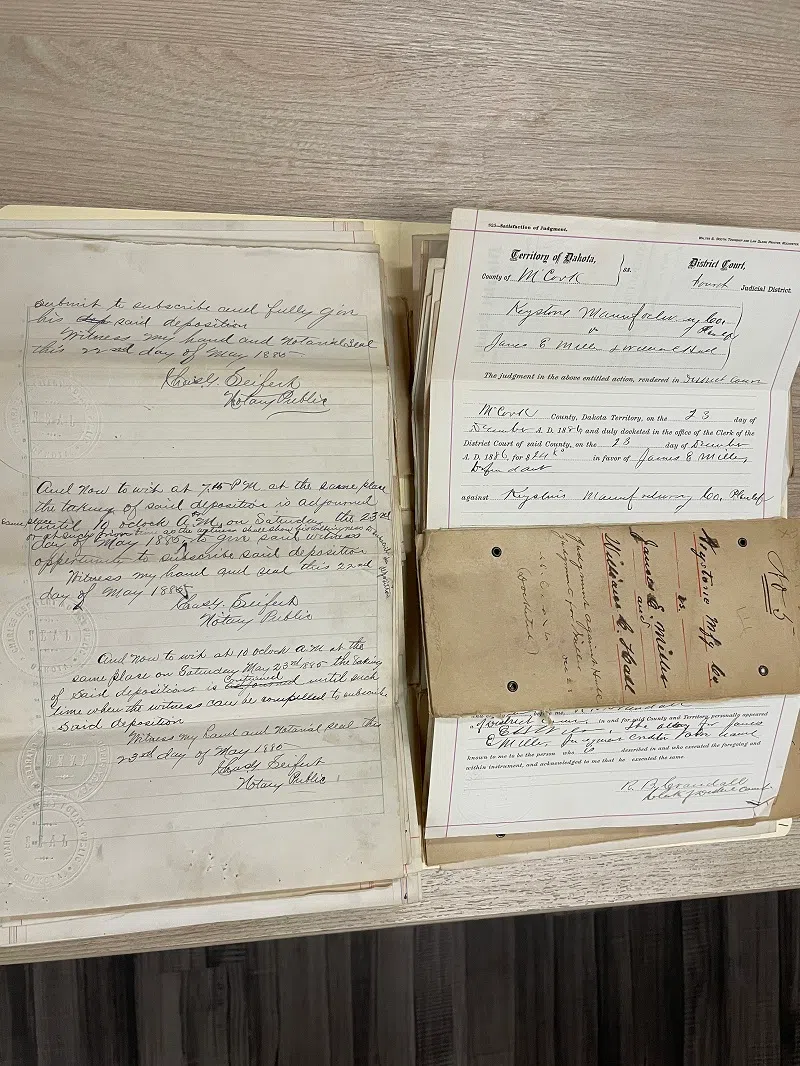 submit to subscribe and fully give
his said deposition
Witness my hand and Notarial Seal
this 22nd day of May 1885
Chas. G. Seifert
Notary Public
And now to wit at P.M. at the same place
the taking of said deposition is adjourned
until 10 oclock A.M. on Saturday the 23rd
same place
day of May 1885 to give said witness
opportunity to subscribe said deposition
Witness my hand and seal this 22nd
day of May 1885
Chas. G. Seifert
Notary Public
And now to wit at 10 oclock A.M. at the
same place on Saturday May 23rd 1885 the taking
of said depositions is until such
time when the witness can be compelled to subscribe
Said deposition
Witness my hand and Notarial seal this
23rd day of May 1885
Chas. G. Seifert
Notary Public
SEAL
SEAL
SEAL
Satisfaction of Judgment.
Territory of Dakota,
County of McCook ss.
District Court,
Fourth Judicial District.
Keystone Manufacturing Co.
Plentf
v
James E Miller & William Hall
The judgment in the above entitled action, rendered in District Court
McCook County, Dakota Territory, on the 23 day of
December A. D. 1886, and duly docketed in the office of the Clerk of the
District Court of said County, on the 23 day of December
A. D. 1886, for $ in favor of James E Miller
Defendant
against Keystone Manufacturing Co. Plentf
No 5
Keystone Mfg Co
vs.
James E. Miller
and
William H. Hall
Judgment against Hall
Judgment for Miller
(Docketed)
before me,
District Court in and for said County and Territory, personally appeared
the atty for James
E Miller
known to me to be the person who described in and who executed the foregoing and
within instrument, and acknowledged to me that he executed the same.
R. A. Crandall
Clerk of District Court